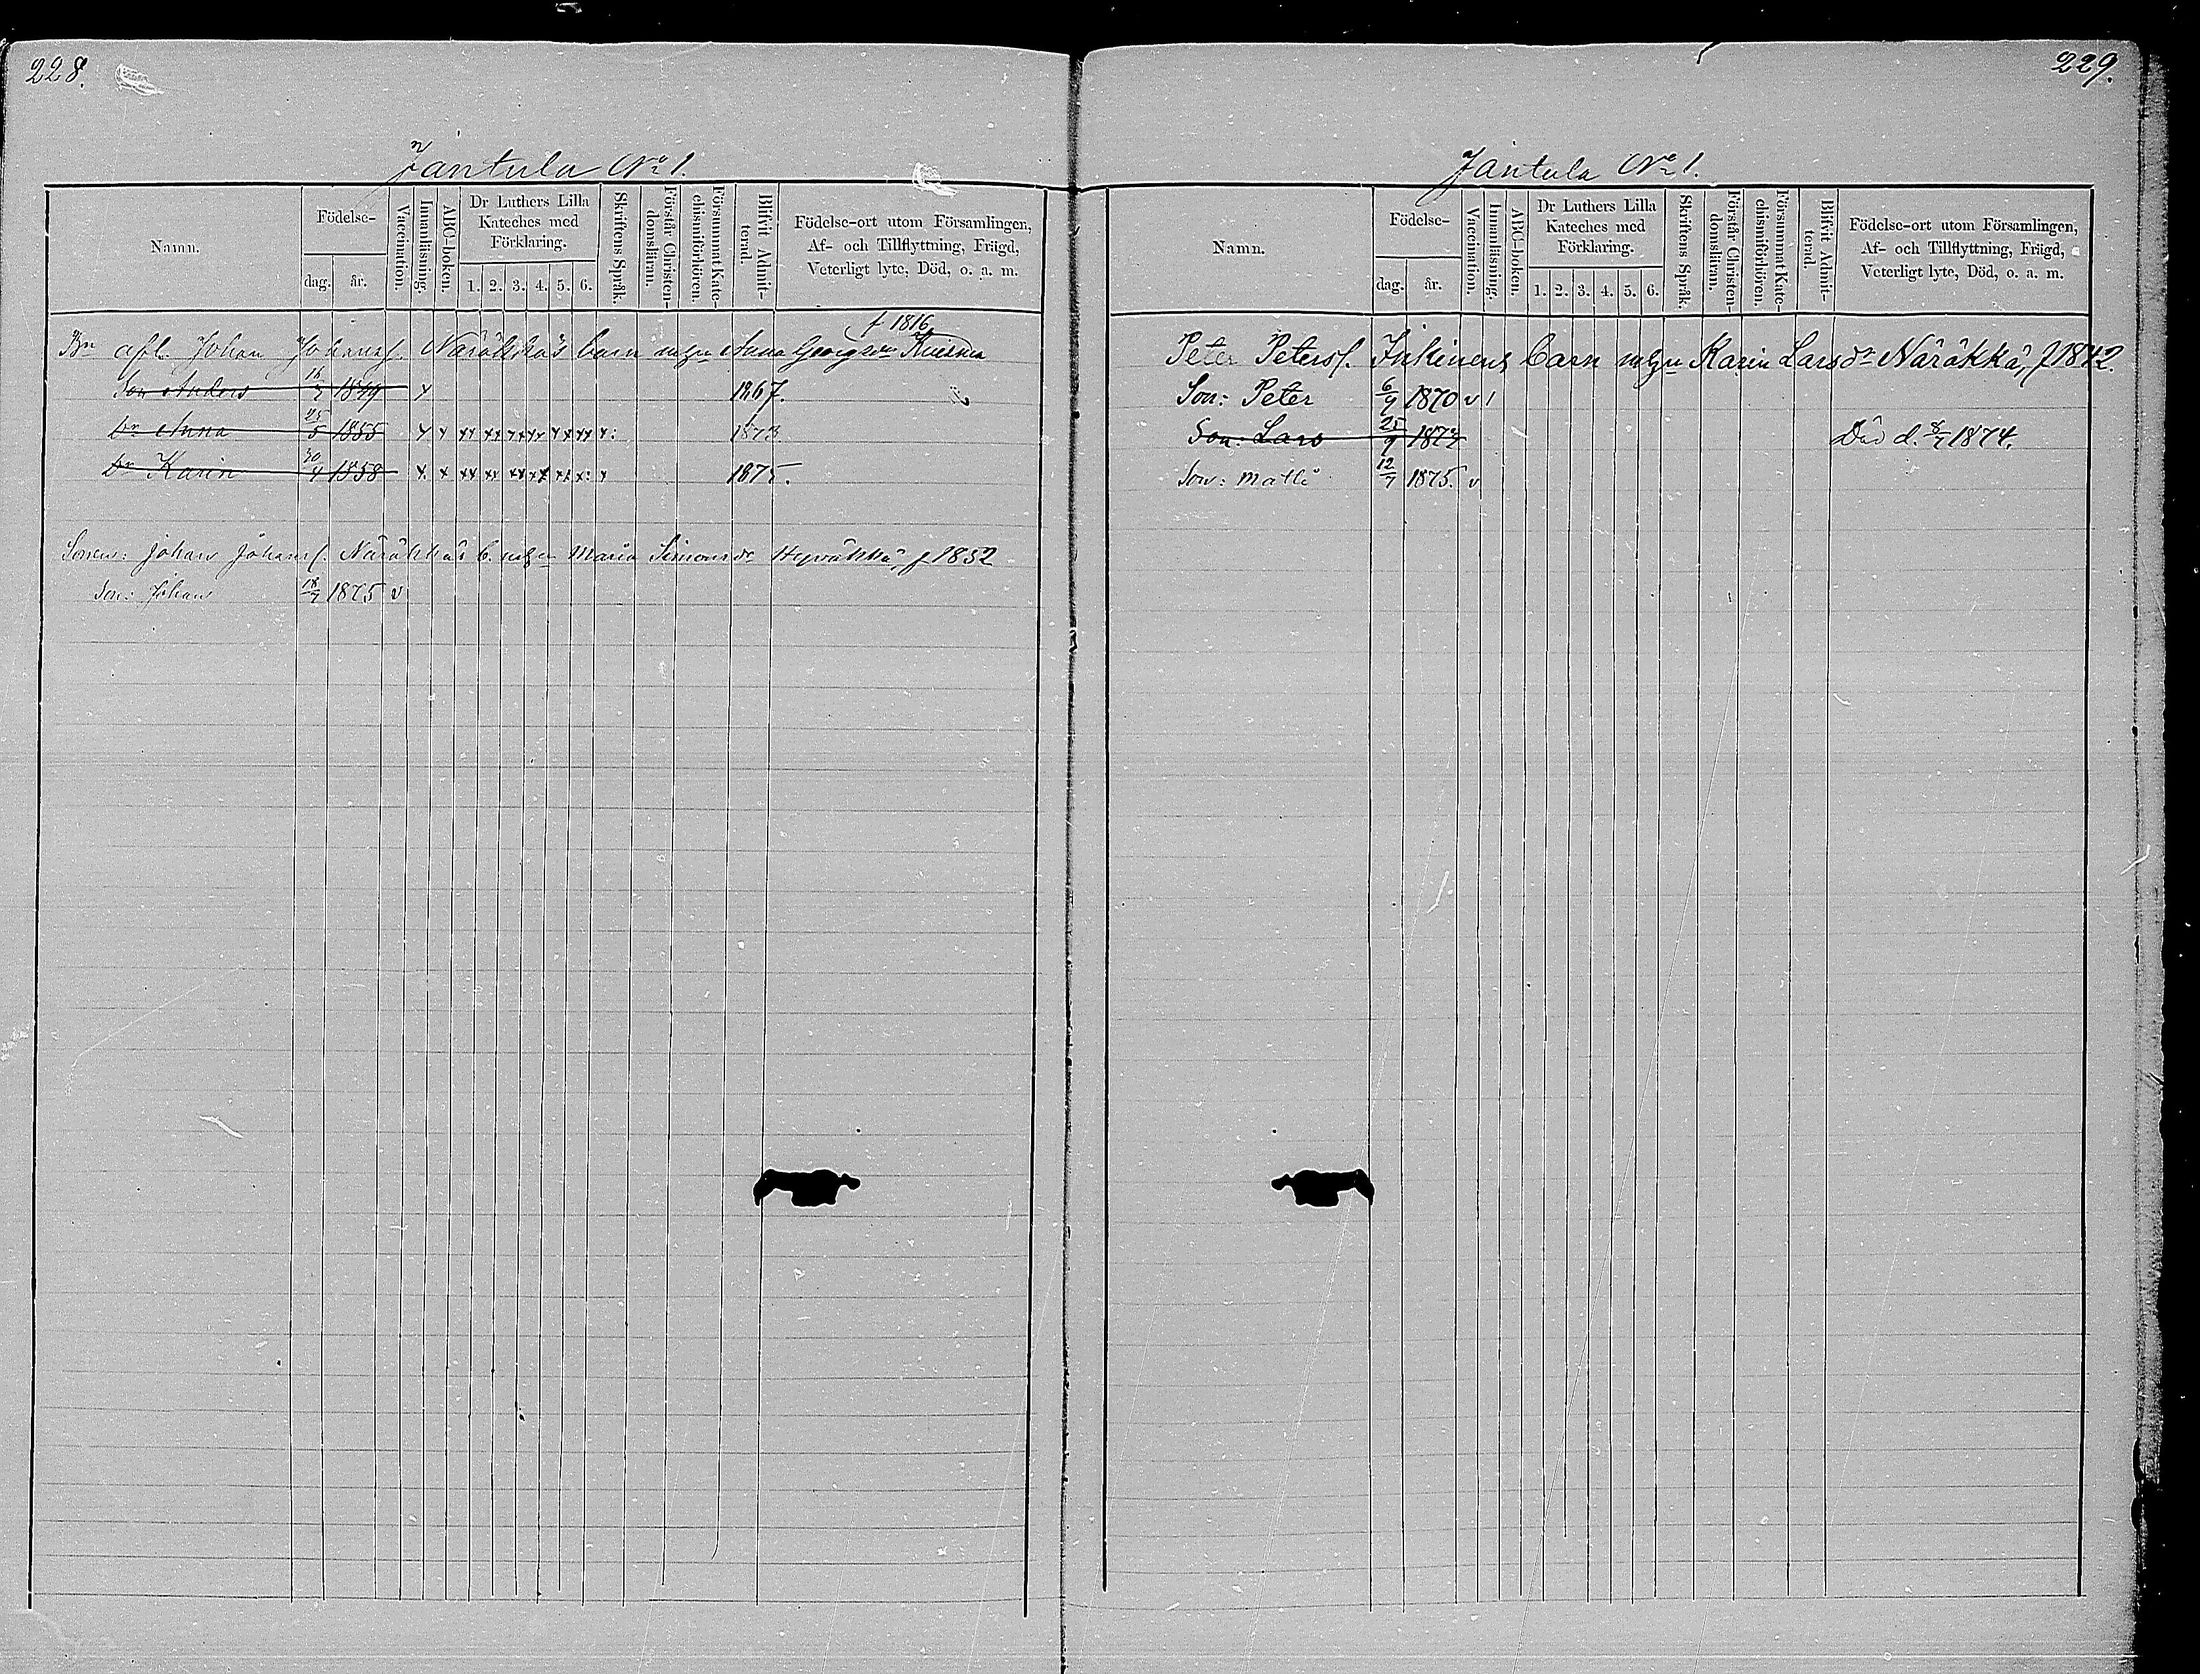 228.
Jantula No 1.
Namn.
Födelse-
dag.
år.
Vaccination.
Innanläsning.
ABC-boken.
Dr Luthers Lilla
Kateches med
Förklaring.
1. 2. 3. 4. 5. 6.
Skriftens Språk.
Förstår Christen-
domsläran.
Försummat Kate-
chismiförhören.
Blifvit Admit-
terad.
Födelse-ort utom Församlingen,
Af- och Tillflyttning, Frägd,
Veterligt lyte, Död, o. a. m.
f 1816
Bn afl. Johan Johansf. Närökkäs barn m. Anna Georgsdr
Son Anders 16/7 1849 x 1867.
Dr Anna 25/5 1855 x x xx xx xx xx xx xx x: 1873
Dr Karin 30/4 1858 x x xx xx xx xx xx x: x 1875.
Sonens: Johans Johansf. Närökkäs b. m. Maria Simonsdr f 1852
Son: Johan 18/7 1875 v
229.
Jäntula No 1.
Namn.
Födelse-
dag.
år.
Vaccination.
Innanläsning.
ABC-boken.
Dr Luthers Lilla
Kateches med
Förklaring.
1. 2. 3. 4. 5. 6.
Skriftens Språk.
Förstår Christen-
domsläran.
Försummat Kate-
chismiförhören.
Blifvit Admit-
terad.
Födelse-ort utom Församlingen,
Af- och Tillflyttning, Frägd,
Veterligt lyte, Död, o. a. m.
Peter Petersf. Inkinens barn m. Karin Larsdr Närökkä, f 1842.
Son: Peter 6/9 1870 v 1
Son: Lars 25/9 1873 Död d. 8/7 1874.
Son: Matti 12/7 1875. v